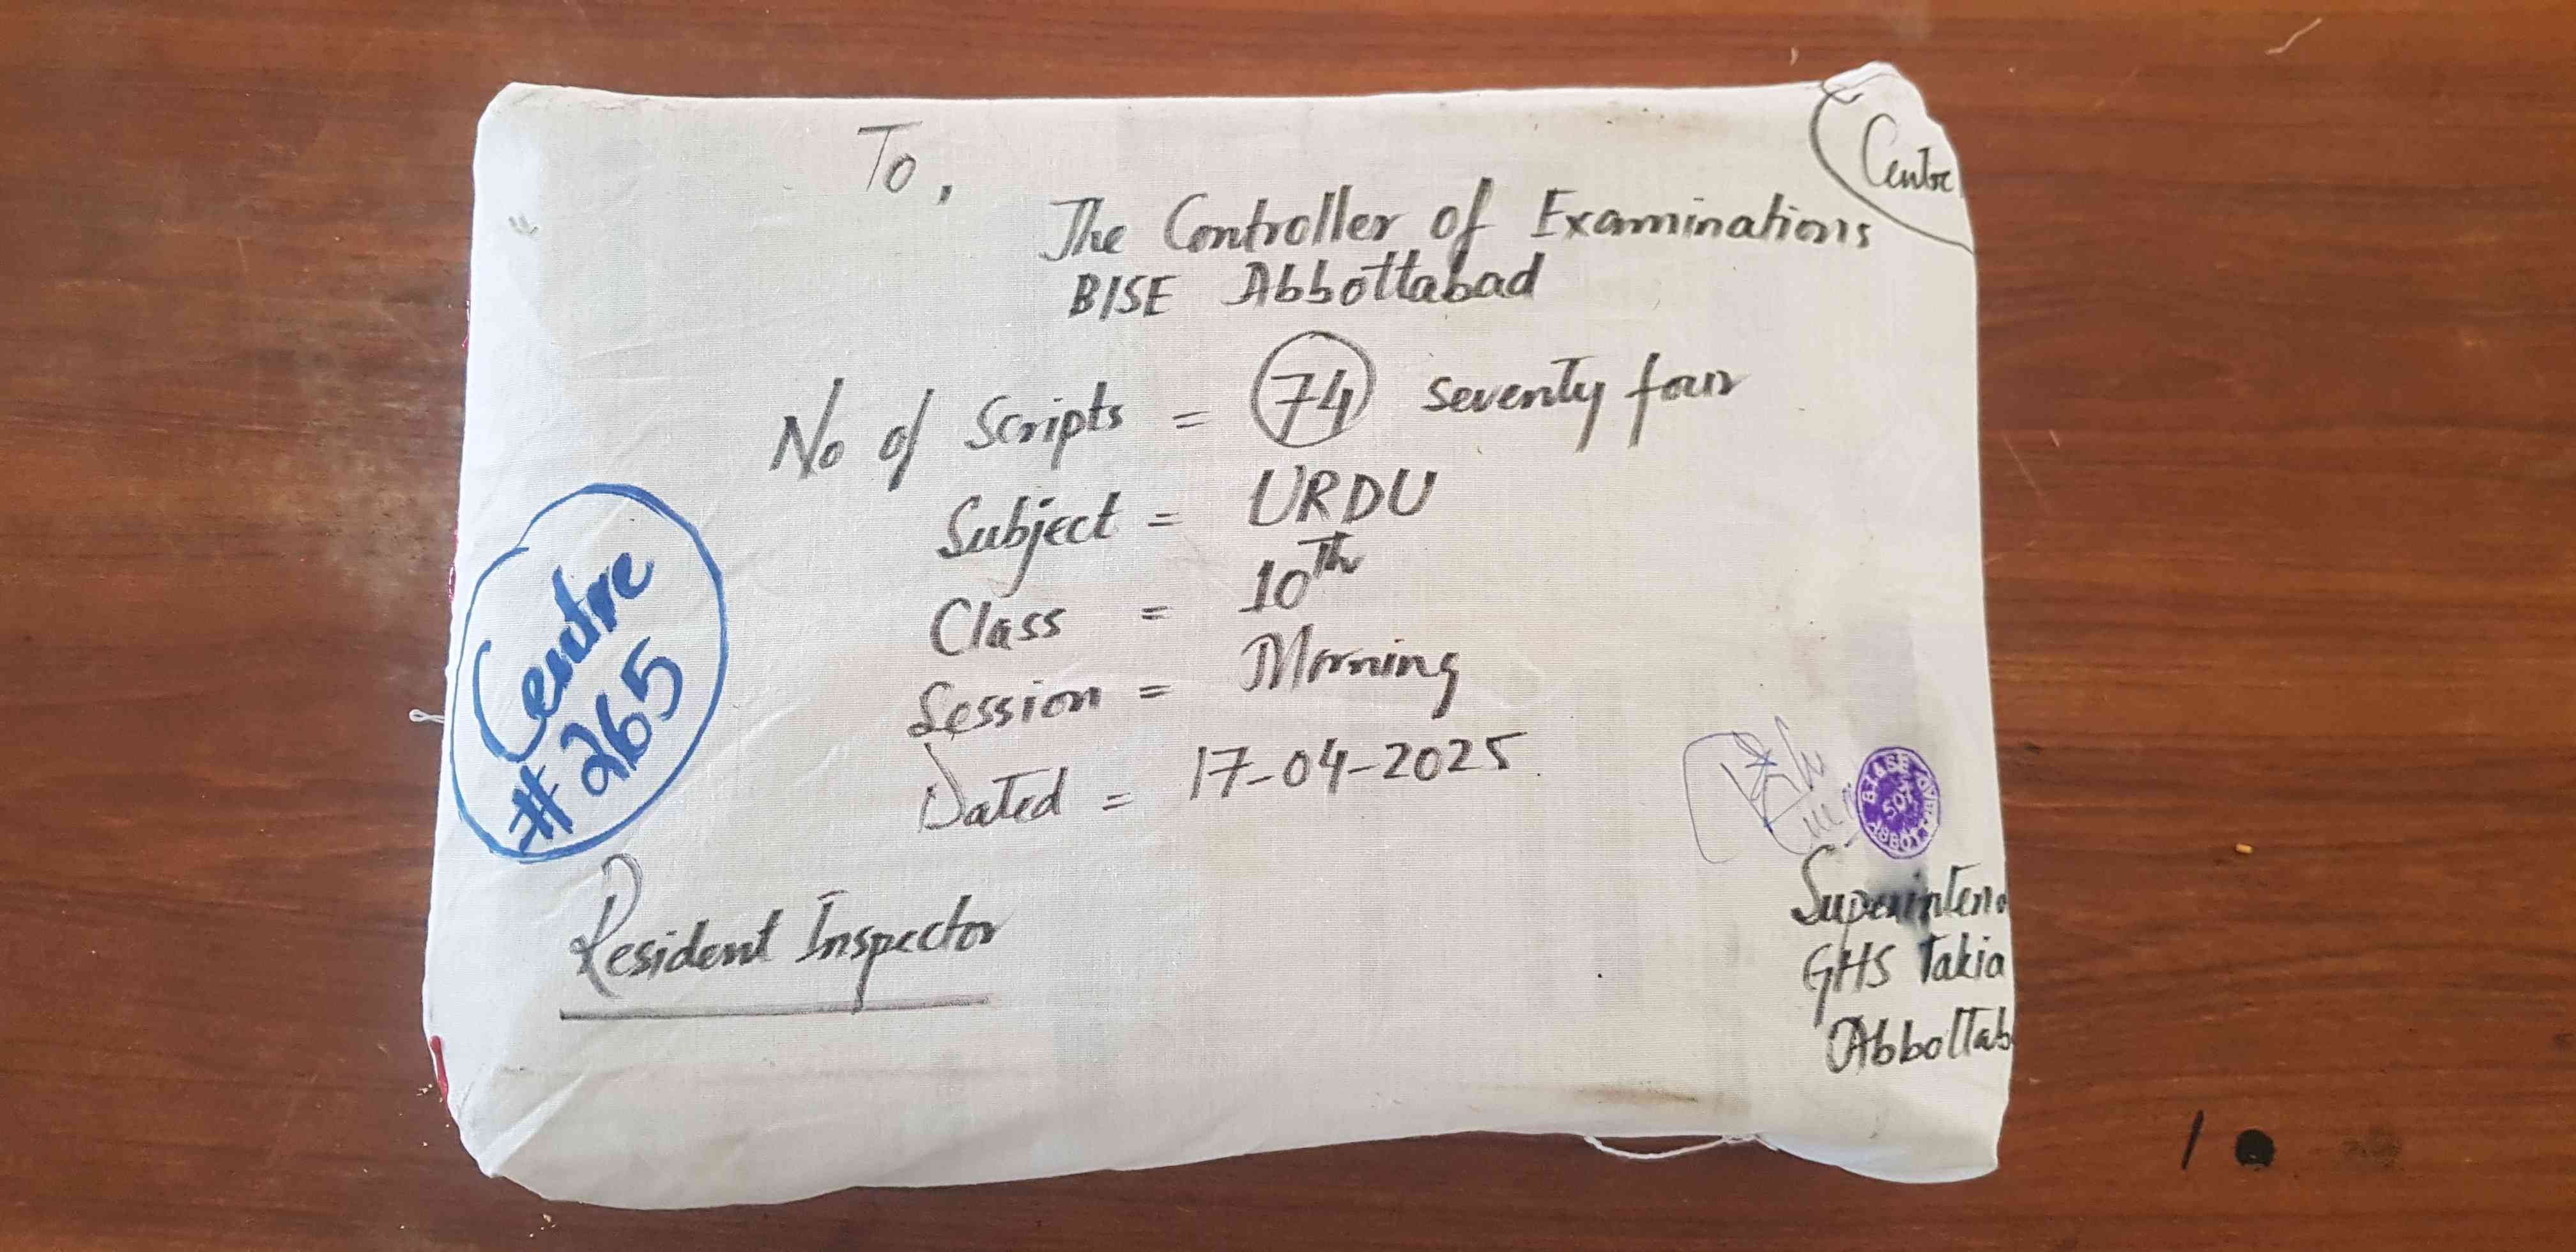 To,
Centre
The Controller of Examinations
BISE Abbottabad
No of Scripts = 74 seventy four
Subject = URDU
Class = 10Th
Session = Morning
Dated = 17-04-2025
Centre
# 265
Resident Inspector
Superinten
GHS Takia
Abbottab